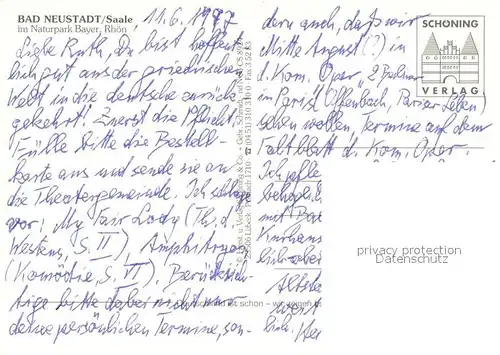 BAD NEUSTADT/Saale
im Naturpark Bayer. Rhön
11.6.1997
Liebe Ruth, Du bist hoffent-
lich gut aus der griechischen
Welt in die deutsche zurück
gekehrt! Zuerst die Pflicht:
Fülle bitte die Bestell-
karte aus und sende sie an
die Theatergemeinde. Ich schlage
vor: My Fair Lady (Th. d.
Westens, S. II), Amphitryon
(Komödie, S. VI), Berücksich-
tige bitte dabei nicht nur
deine persönlichen Termine, son-
dern auch, daß wir
Mitte August (?) in
d. Kom. Oper "2 Berliner
in Paris" (Offenbach, Pariser Leben)
sehen wollen, Termine auf dem
Faltblatt d. Kom. Oper.
Ich
behaglich
mit Bad
Kurhaus
lich
SCHÖNING
VERLAG
Schöning & Co + Gebr. Schmidt
Lübeck
ist schön – wir zeigen
privacy protection
Datenschutz